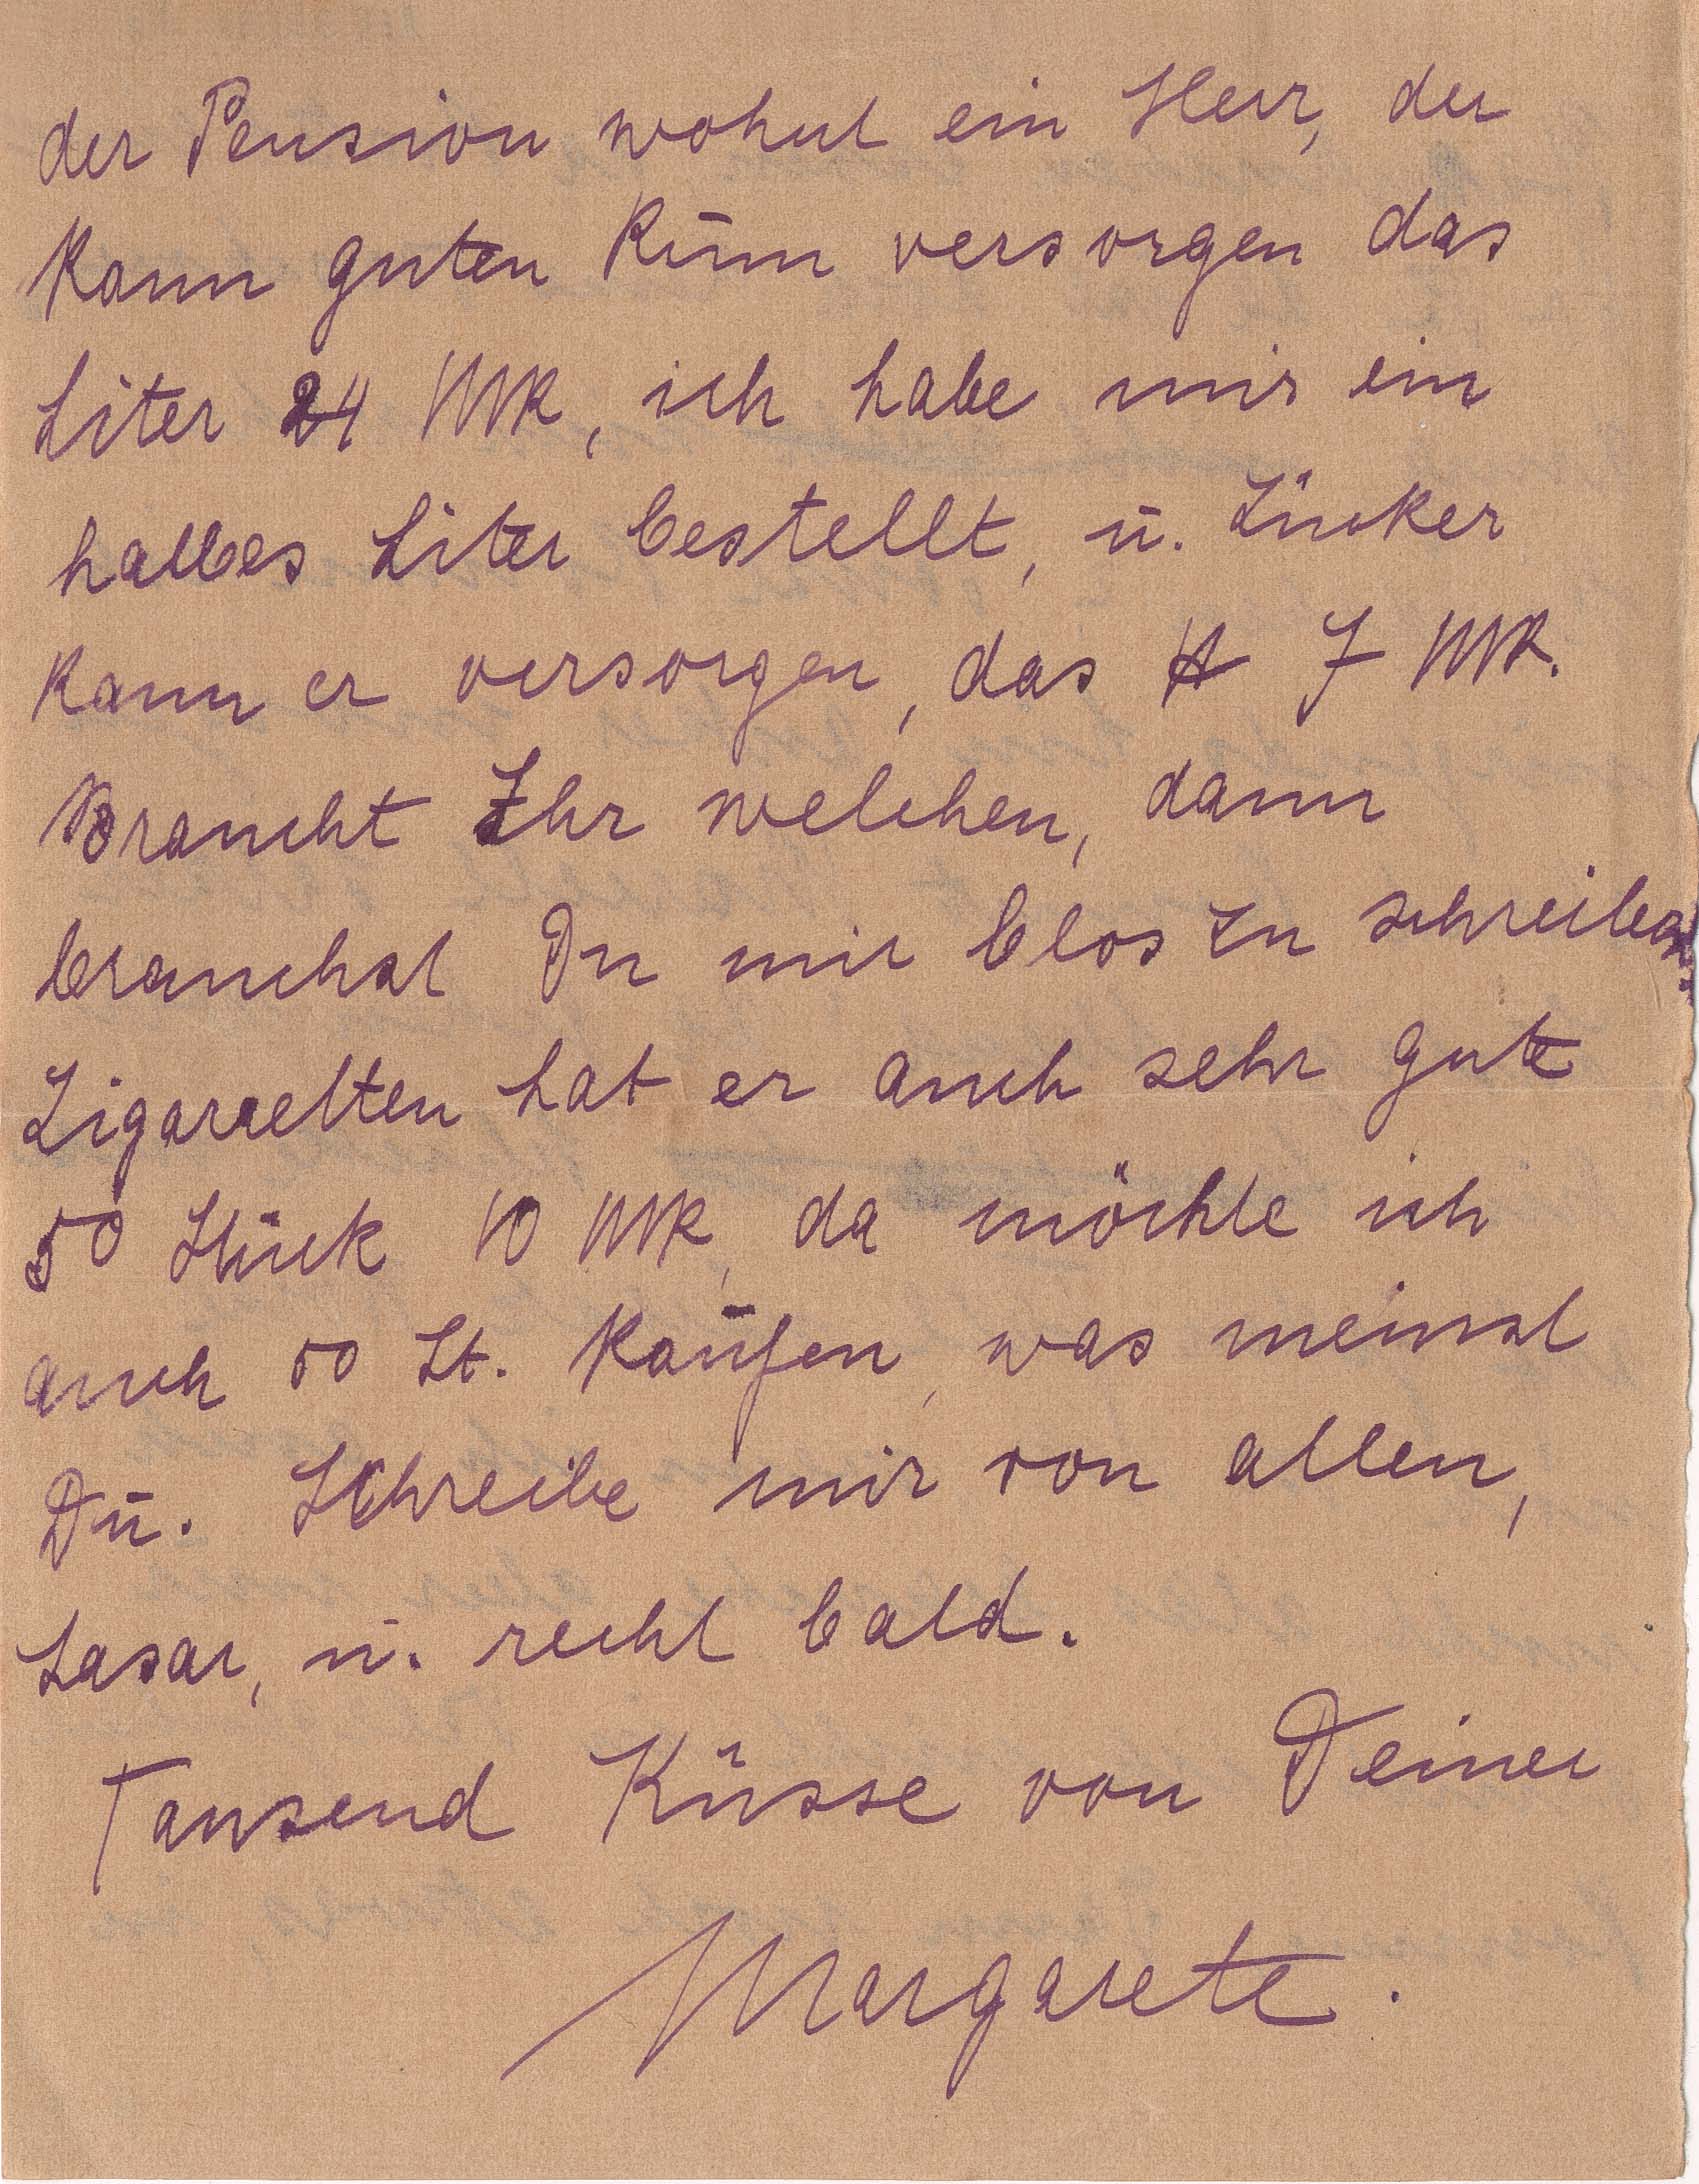 der Pension wohnt ein Herr, der
kann guten Rūm versorgen das
Liter 24 MK, ich habe mir ein
halbes Liter bestellt, ū. Zucker
kann er versorgen, das ℔ 7 MK.
Braucht Ihr welchen, dann
brauchst Du mir blos zu schreiben.
Zigaretten hat er auch sehr gute
50 Stück 10 MK, da möchte ich
auch 50 St. kaūfen, was meinst
Dū. Schreibe mir von allen,
Lasar, ū. recht bald.
Tausend Küsse von Deiner
Margarete.